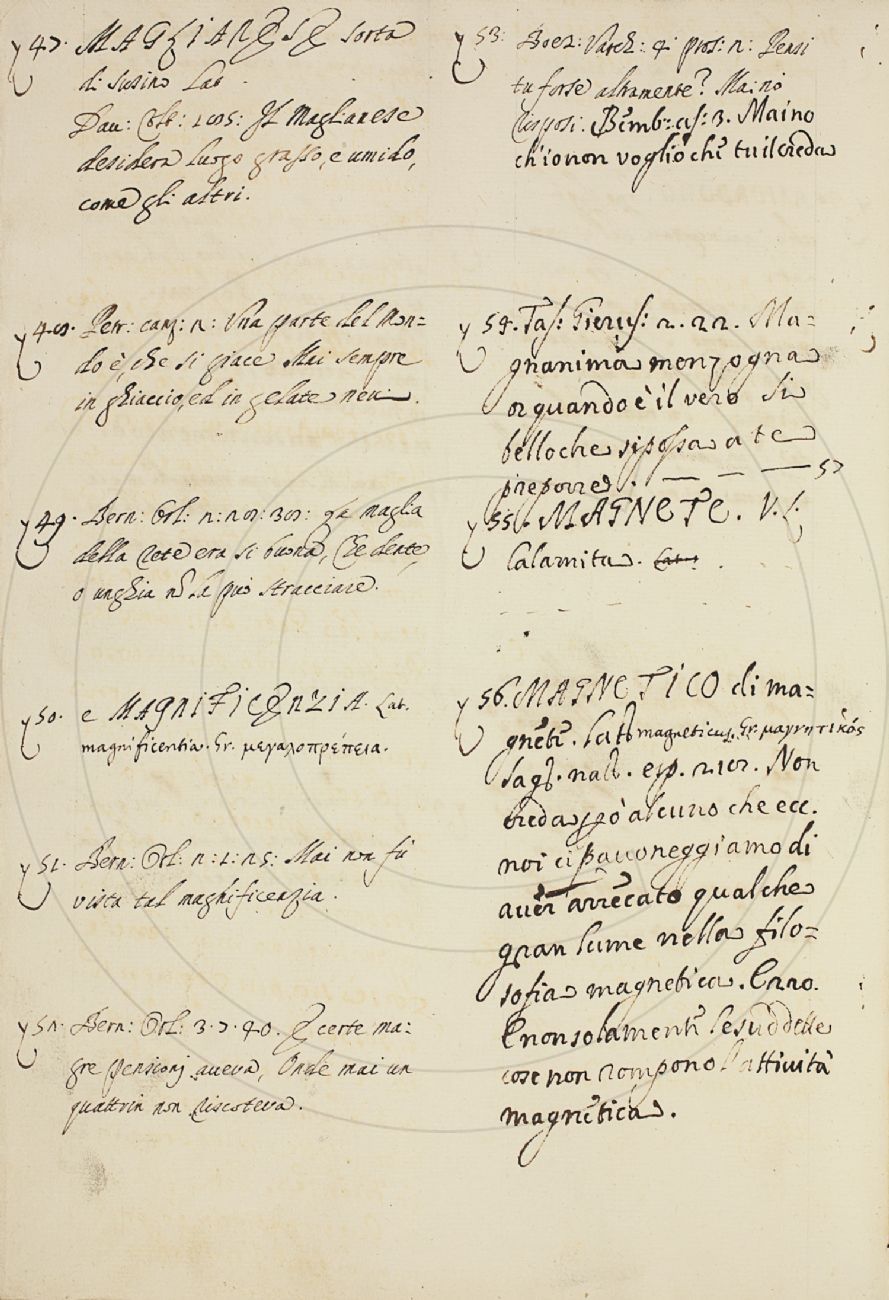 47. MAGLIANESE sorta
di susino Lat
Dav: Colt: 185: Il Maglianese
desidera luogo grasso, e umido,
come gli altri.
48. Petr: canz: 2: Una parte del mon=
do è, che si giace Mai sempre
in ghiaccio, ed in gelate nevi.
49. Bern: Orl: 2: 28: 38: la maglia
della rete era si buona, Che dente,
o unghia nō la può stracciare.
50. e MAGNIFICENZIA. Lat.
magnificentia. Gr. μεγαλοπρέπεια.
51. Bern: Orl: 2:1:25: Mai non fu
vista tal magnificenzia.
52. Bern: Orl: 3.7.40. E certe ma:
gre pensioni aveva, Onde mai un
quattrin non riscoteva.
53: Boez: Varch: 4: pros: 2: Pensi
tu forse altramente? Mai nò
risposi. Bemb: as: 3. Maino
ch'io non voglio che tu il creda
54. Tas: Gierus: 2. 22. Ma=
gnanima menzogna
or quando è il vero Si
bello che si possa a te
preporre. 57
55. MAGNETE. V. L.
Calamita. Lat:
56. MAGNETICO di ma=
gnete. Lat magneticus. Gr. μαγνητικός
Sag. nat. esp. 218. Non
creda già alcuno che ecc.
noi ci pavoneggiamo di
aver arrecato qualche
gran lume nella filo=
sofia magnetica. E 220.
E non solamente le suddette
cose non rompono l'attività
magnetica.